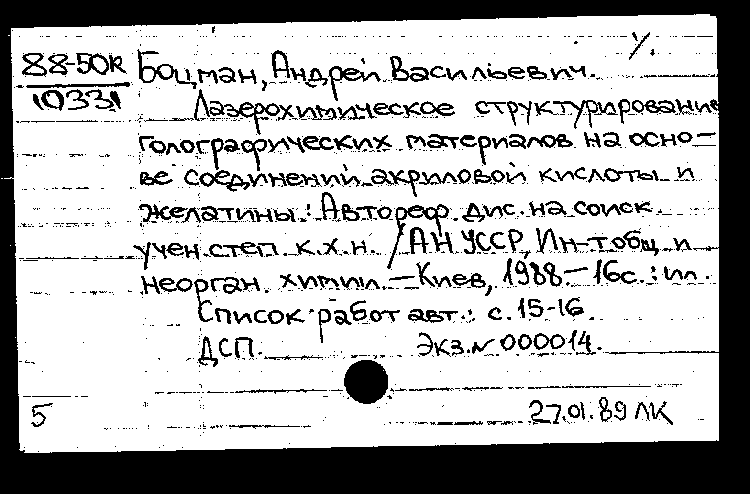 У.
88-50к Боцман, Андрей Васильевич.
10331 Лазерохимическое структурирование
голографических материалов на осно-
ве соединений акриловой кислоты и
желатины: Автореф. дис. на соиск.
учен. степ. к.х.н. /АН УССР, Ин-т общ. и
неорган. химии. — Киев, 1988. — 16с.: ил.
Список работ авт.: с. 15-16.
ДСП. Экз. N 000014.
5 27.01.89 ЛК